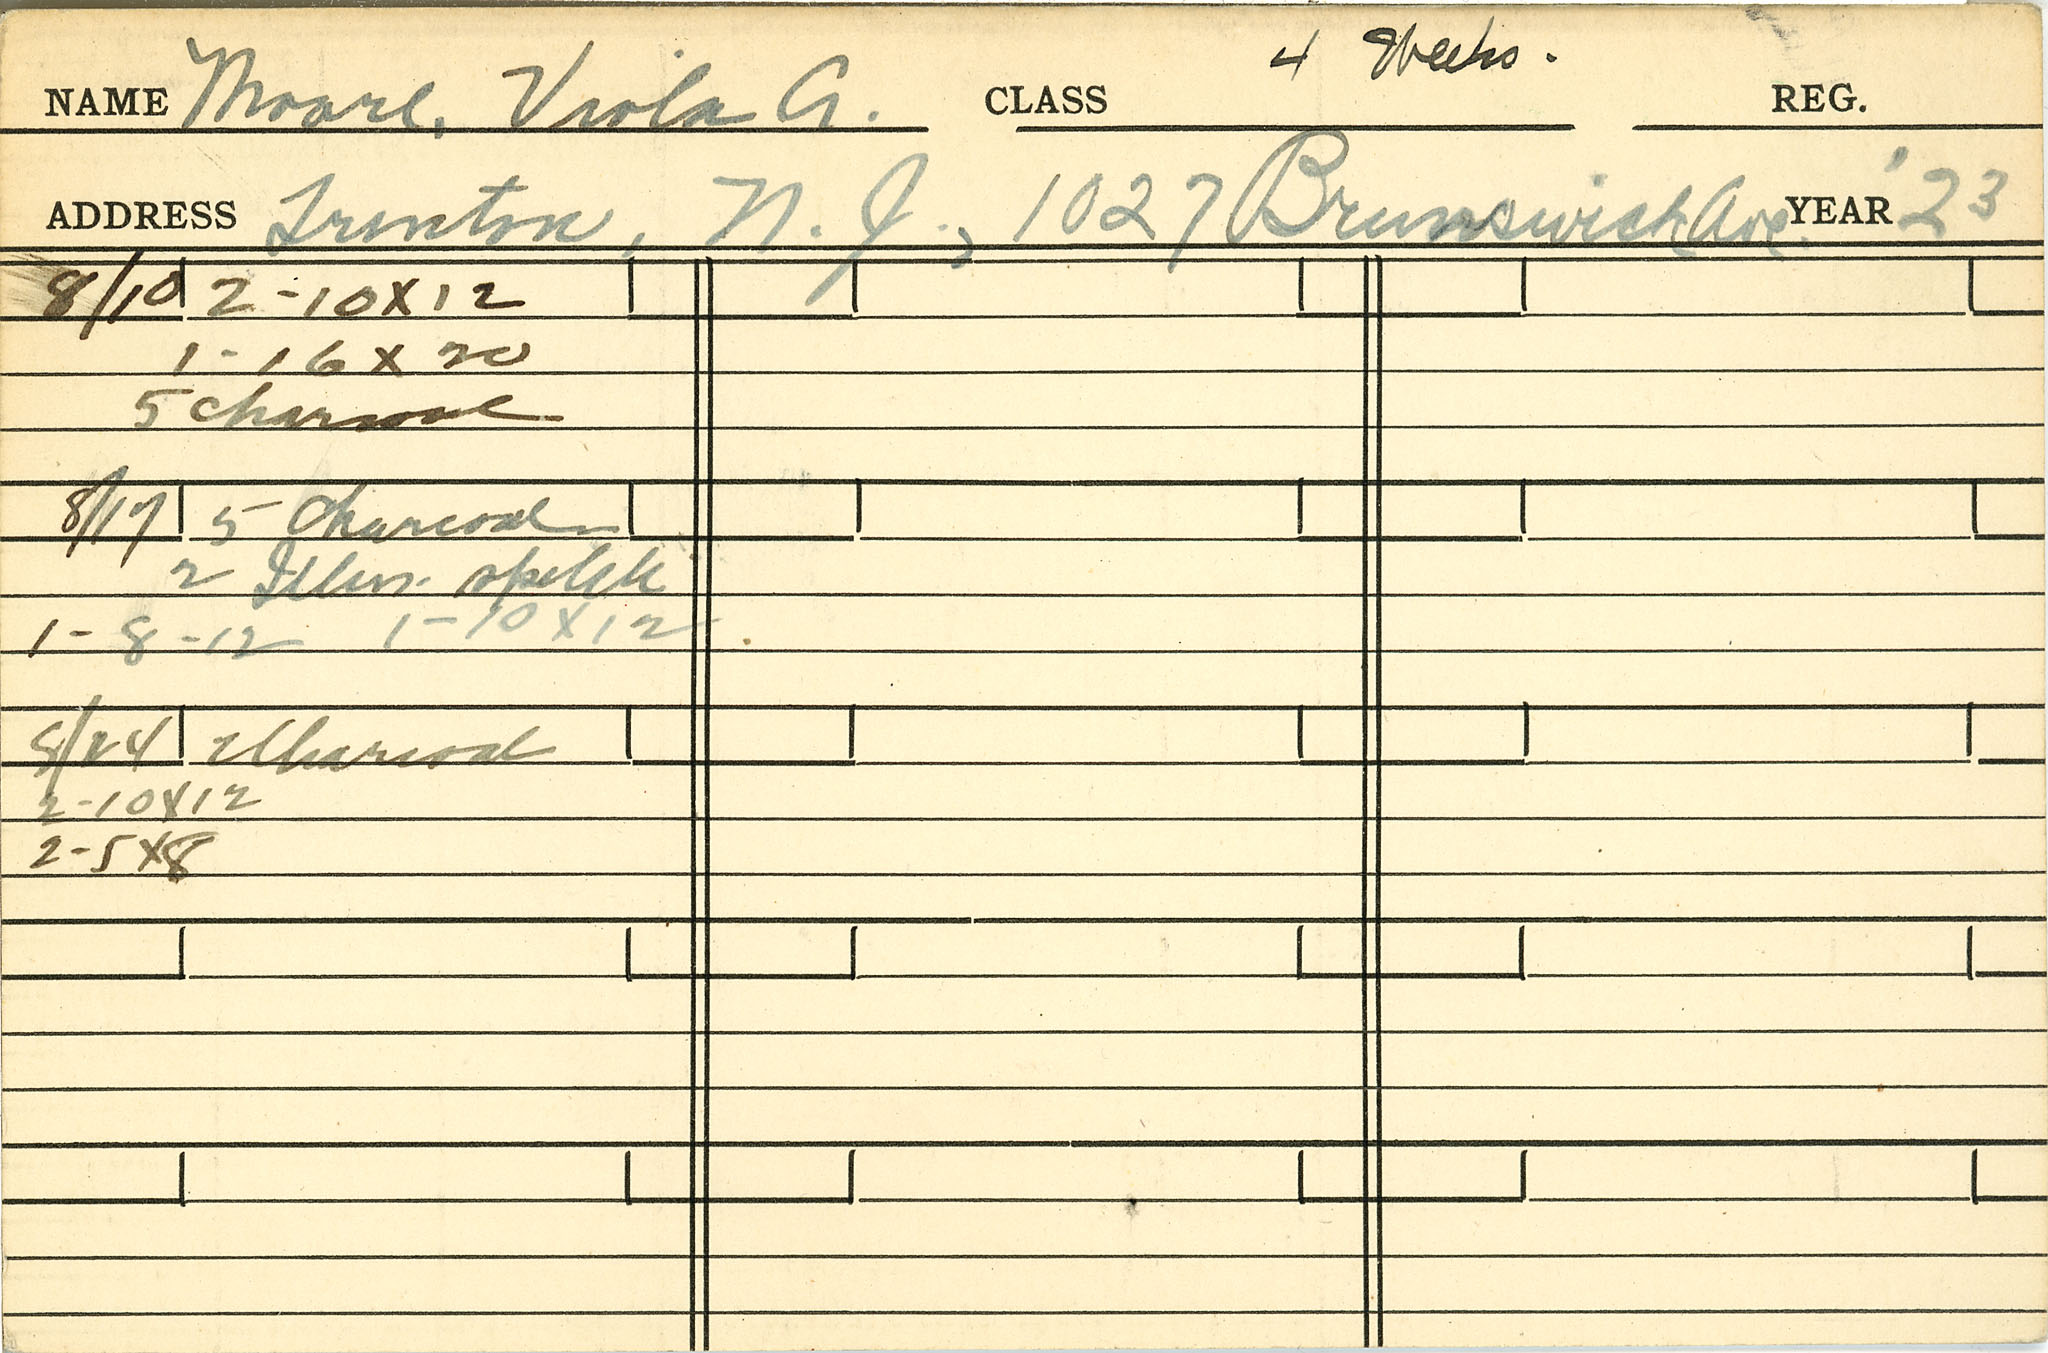 NAME Moore, Viola A. CLASS 4 Weeks. REG.
ADDRESS Trenton, N. J., 1027 Brunswick Ave. YEAR '23
8/10 2-10x12
1-16x20
5 charcoal
8/17 5 Charcoal
2 Illus. sketch
1-8-12 1-10x12
8/24 Charcoal
2-10x12
2-5x8